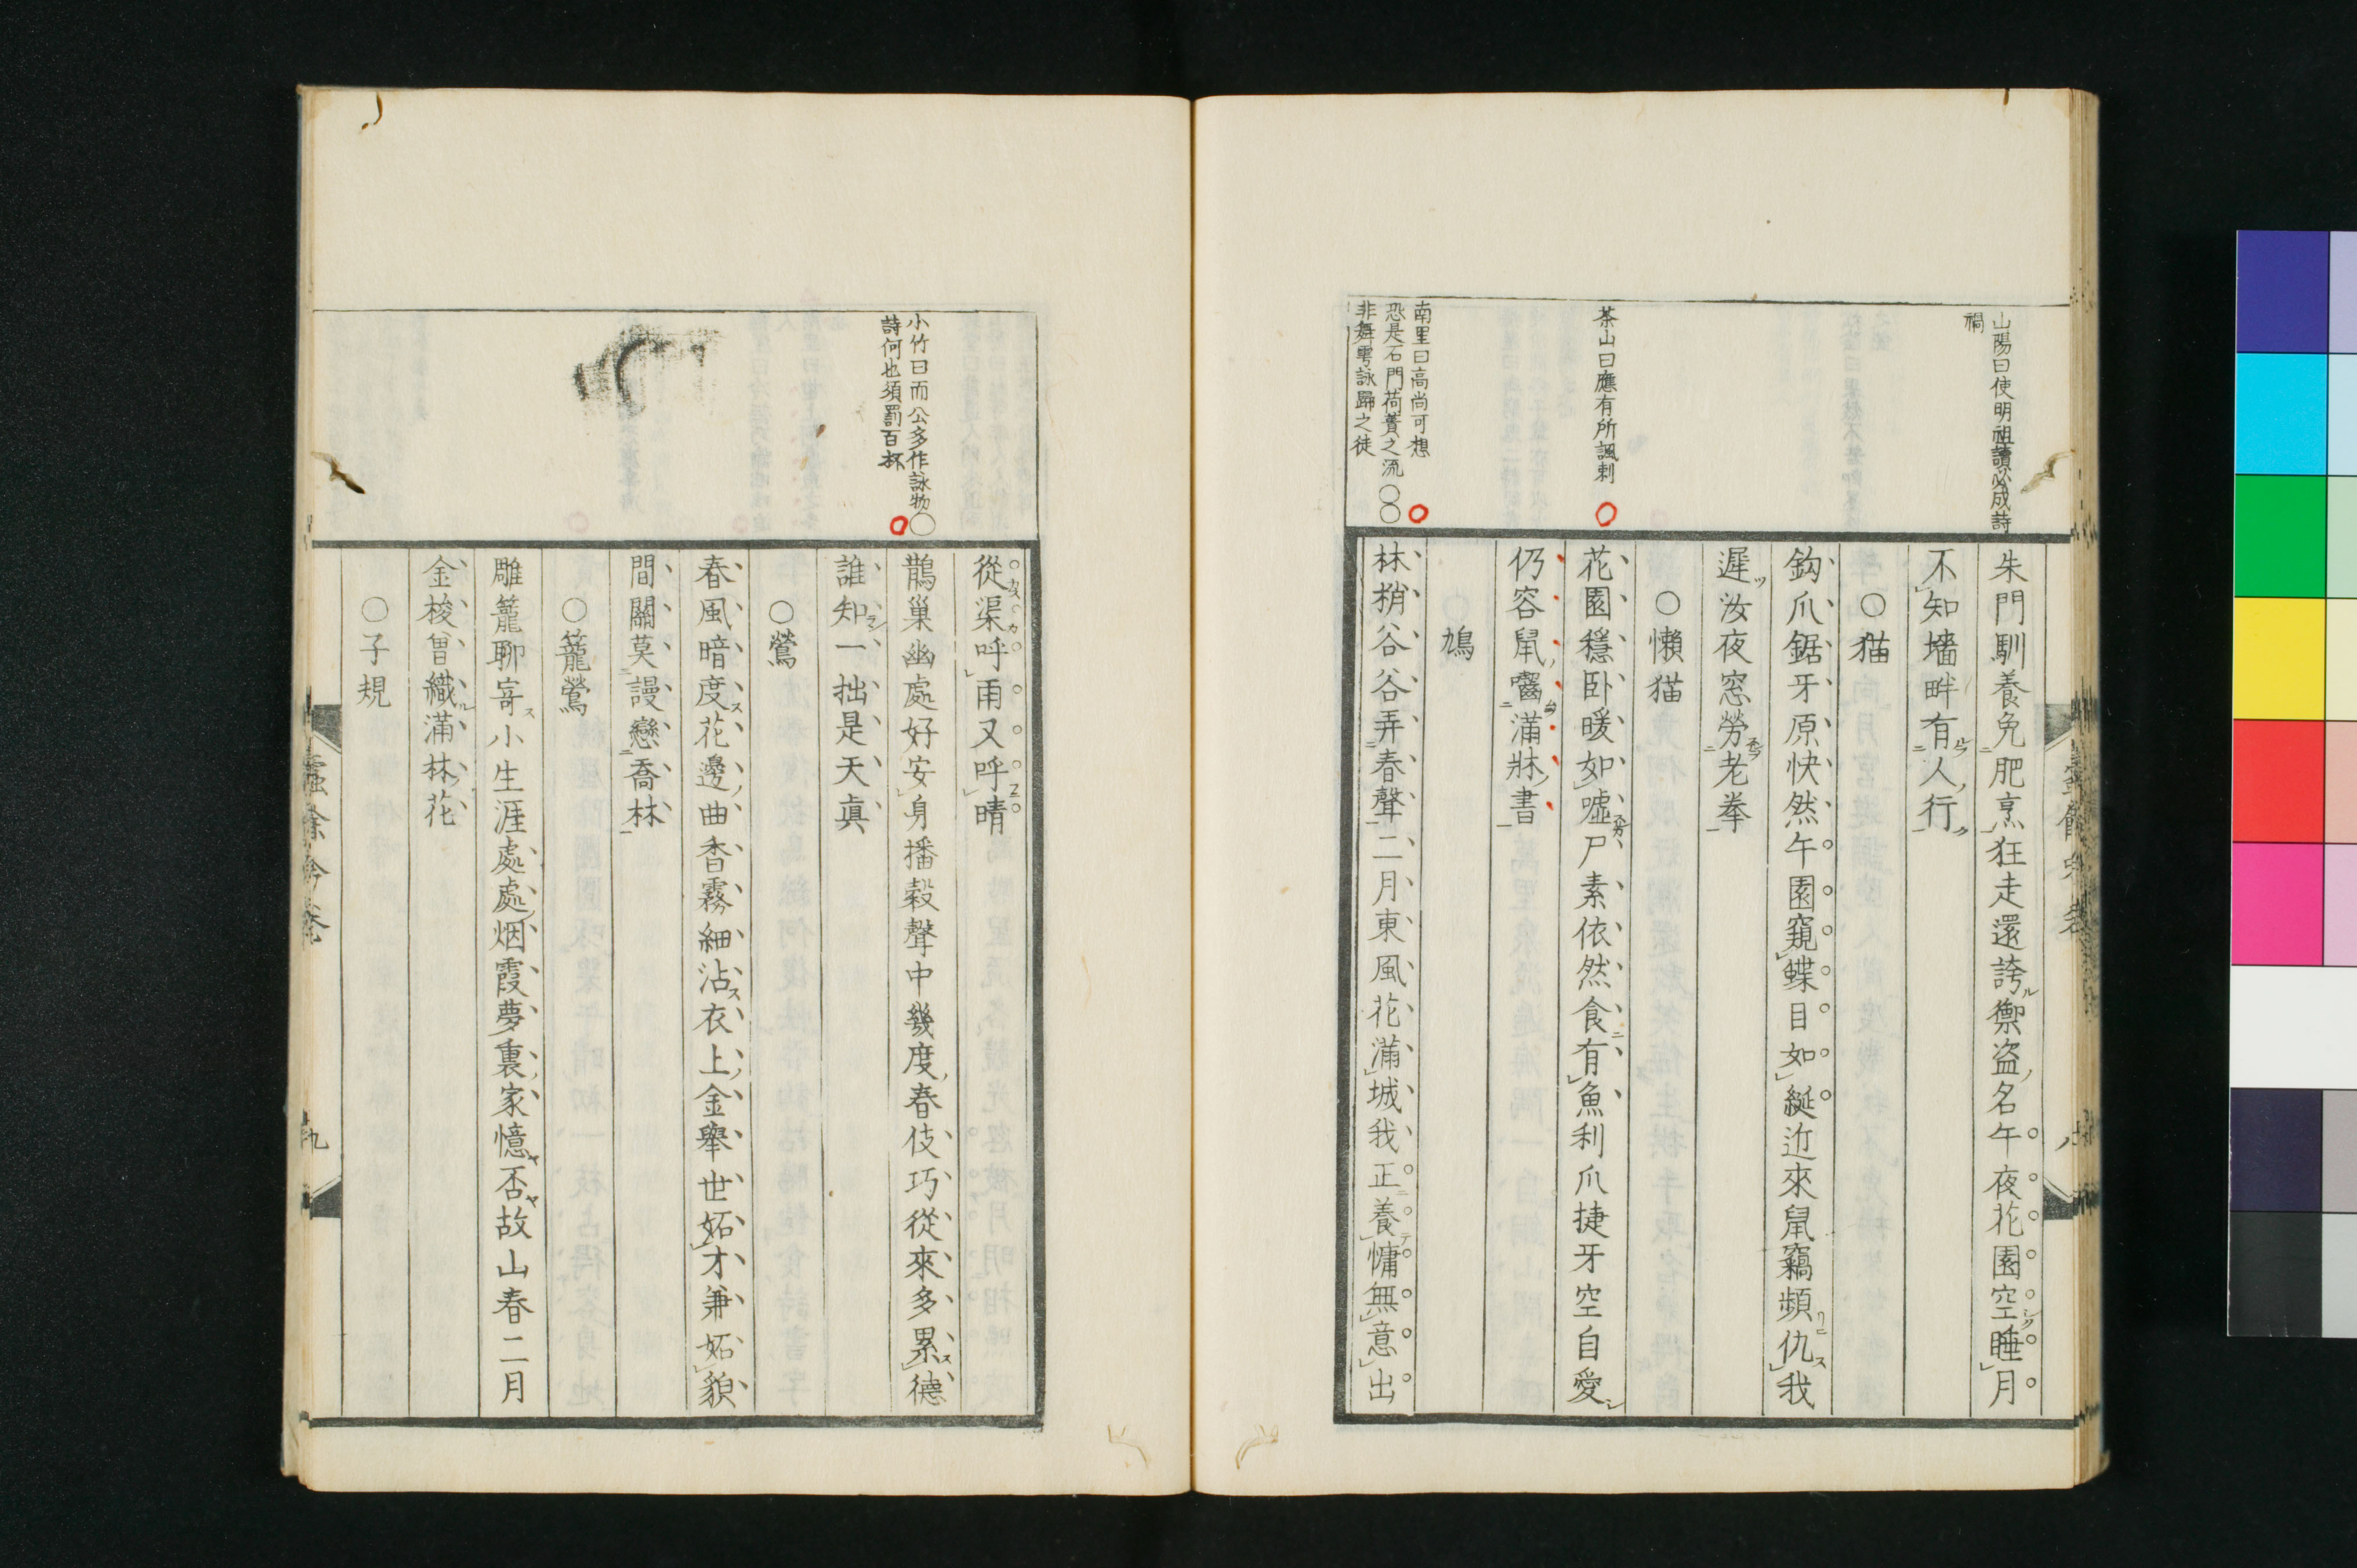 山陽曰使明祖讀必成詩
禍
朱門馴養免肥烹狂走還誇禦盗名午夜花園空睡月
不知墻畔有人行
○猫
鈎爪鋸牙原快然午園窺蝶目如綖近來鼠竊頻仇我
遲汝夜窓勞老拳
○懶猫
茶山曰應有所諷刺
花園穩卧暖如嘘尸素依然食有魚利爪捷牙空自愛
仍容鼠囓滿牀書
鳩
南里曰高尚可想
恐是石門荷蕢之流
非舞雩詠歸之徒
林梢谷谷弄春聲二月東風花滿城我正養慵無意出
從渠呼雨又呼晴
小竹曰而公多作詠物
詩何也須罰百杯
鵲巢幽處好安身播穀聲中幾度春伎巧從來多累德
誰知一拙是天眞
○鶯
春風暗度花邊曲香霧細沾衣上金舉世妬才兼妬貌
間關莫謾戀喬林
○籠鶯
雕籠聊寄小生涯處處烟霞夢裏家憶否故山春二月
金梭曽織滿林花
○子規
九